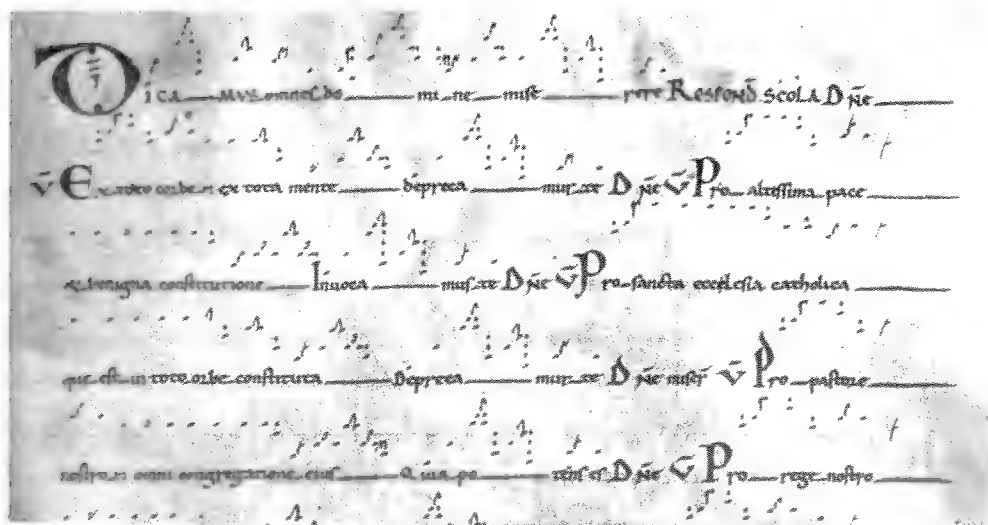 DICA MUS omnes do mi ne mise rere RESPOND SCOLA D ñe
V̄ Ex toto corde et ex tota mente depreca mur te D ñe V̄ Pro altissima pace
et benigna constitutione Invoca mus te D ñe V̄ Pro sancta ecclesia catholica
que est in toto orbe constituta Depreca mur te D ñe miser V̄ Pro pastore
nostro et omni congregatione eius Quia po tens es D ñe V̄ Pro rege nostro